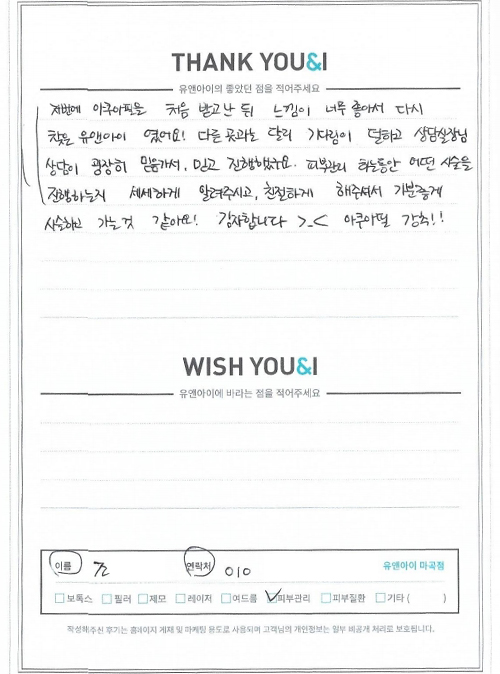 THANK YOU&I
유앤아이의 좋았던 점을 적어주세요
저번에 아쿠아필을 처음 받고난 뒤 느낌이 너무 좋아서 다시
찾은 유앤아이 였어요! 다른 곳과는 달리 기다림이 덜하고 상담실장님
상담이 굉장히 믿음가서, 믿고 진행했구요. 피부관리 하는동안 어떤 시술을
진행하는지 세세하게 알려주시고, 친절하게 해주셔서 기분좋게
시술하고 가는것 같아요! 감사합니다 >_< 아쿠아필 강추!!
WISH YOU&I
유앤아이에 바라는 점을 적어주세요
이름 연락처 010 유앤아이 마곡점
보톡스 필러 제모 레이저 여드름 피부관리 피부질환 기타 ( )
작성해주신 후기는 홈페이지 게재 및 마케팅 용도로 사용되며 고객님의 개인정보는 일부 비공개 처리로 보호됩니다.